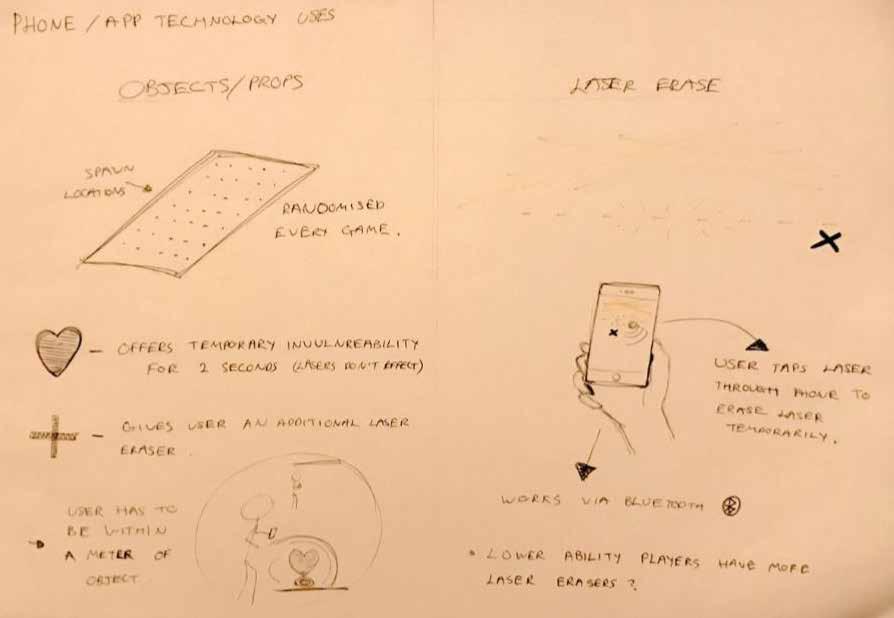 PHONE / APP TECHNOLOGY USES
OBJECTS/PROPS
SPAWN
LOCATIONS
RANDOMISED
EVERY GAME.
- OFFERS TEMPORARY INVULNREABILITY
FOR 2 SECONDS (LASERS DON'T EFFECT)
- GIVES USER AN ADDITIONAL LASER
ERASER.
USER HAS TO
BE WITHIN
A METER OF
OBJECT
LASER ERASE
USER TAPS LASER
THROUGH PHONE TO
ERASE LASER
TEMPORARILY.
WORKS VIA BLUETOOTH
• LOWER ABILITY PLAYERS HAVE MORE
LASER ERASERS?